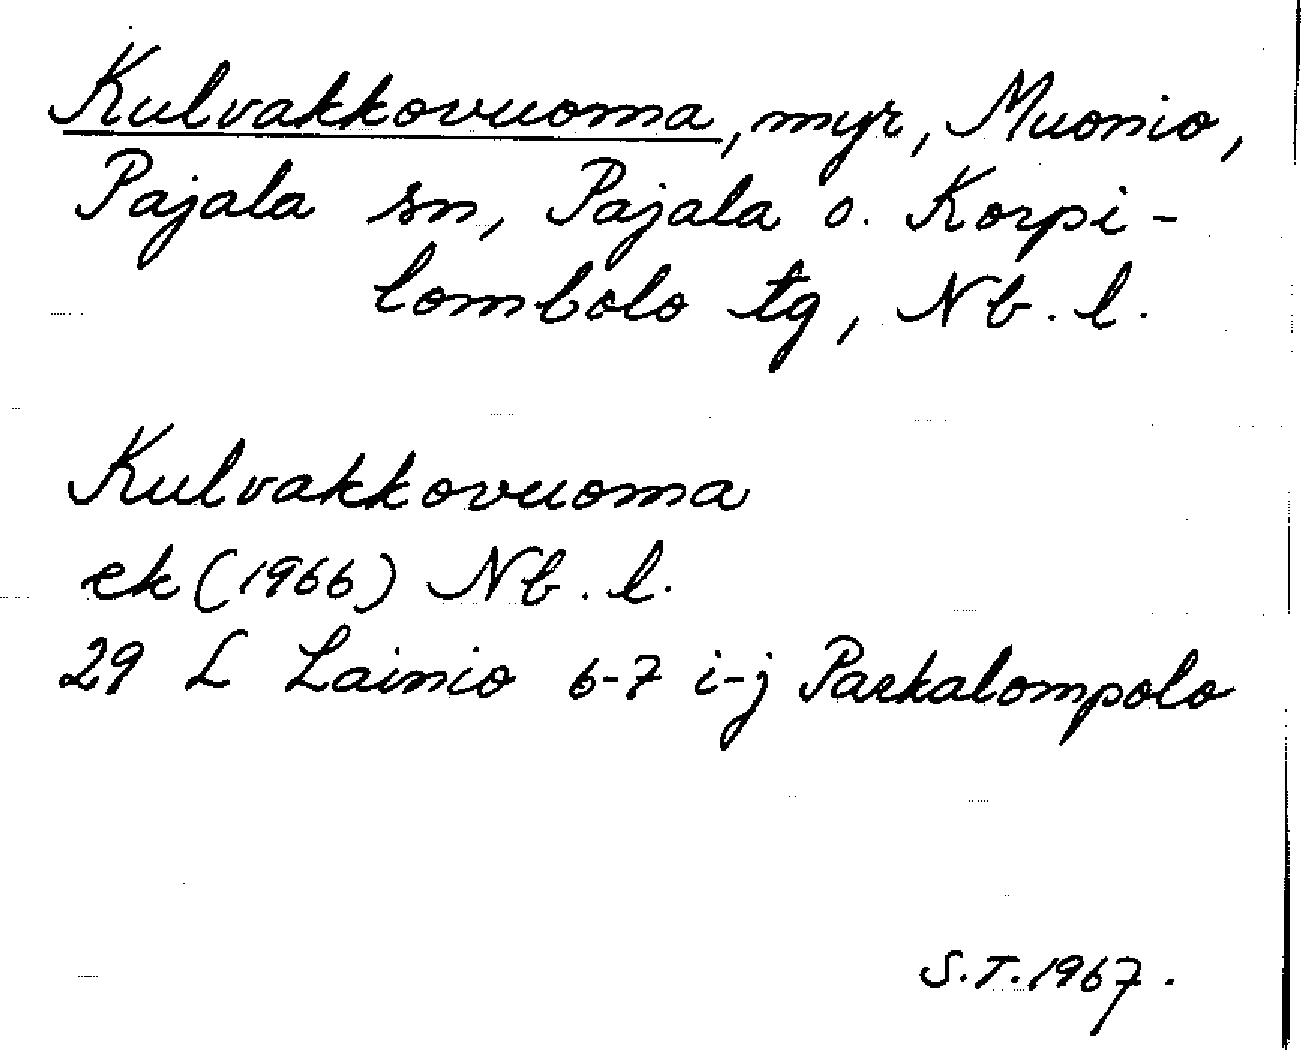 Kulvakkovuoma, myr, Muonio,
Pajala sn, Pajala o. Korpi-
lombolo tg, Nb. l.
Kulvakkovuoma
ek (1966) Nb. l.
29 L Lainio 6-7 i-j Parkalompolo
S.T. 1967.